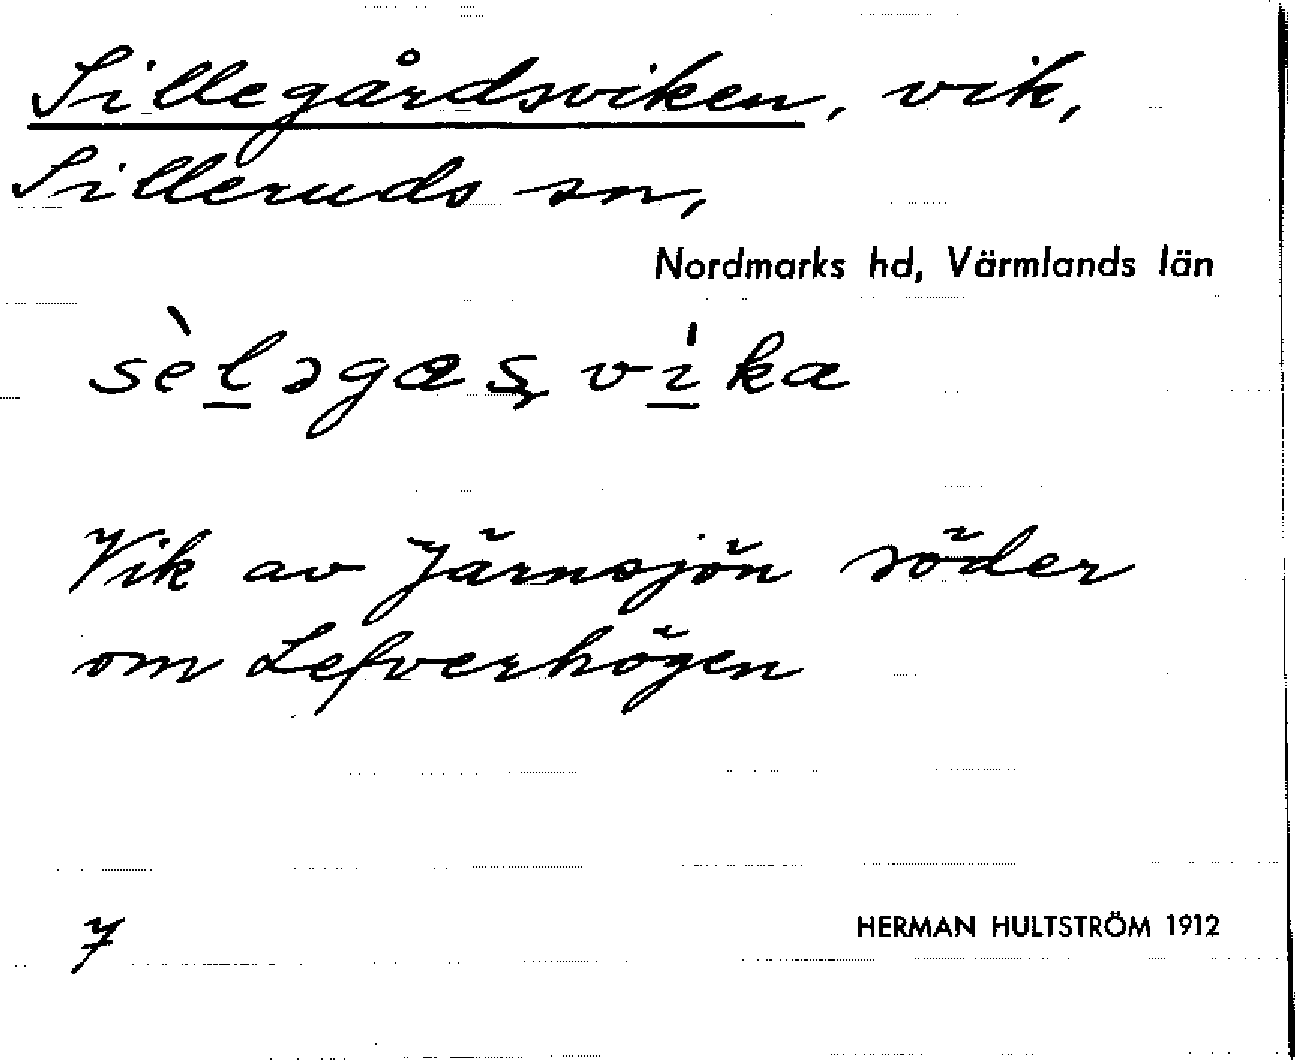 Sillegårdsviken, vik,
Silleruds sn,
Nordmarks hd, Värmlands län
sèl̲əgaʂ ví̲ka
Vik av Järnsjön söder
om Lefverhögen
7
HERMAN HULTSTRÖM 1912